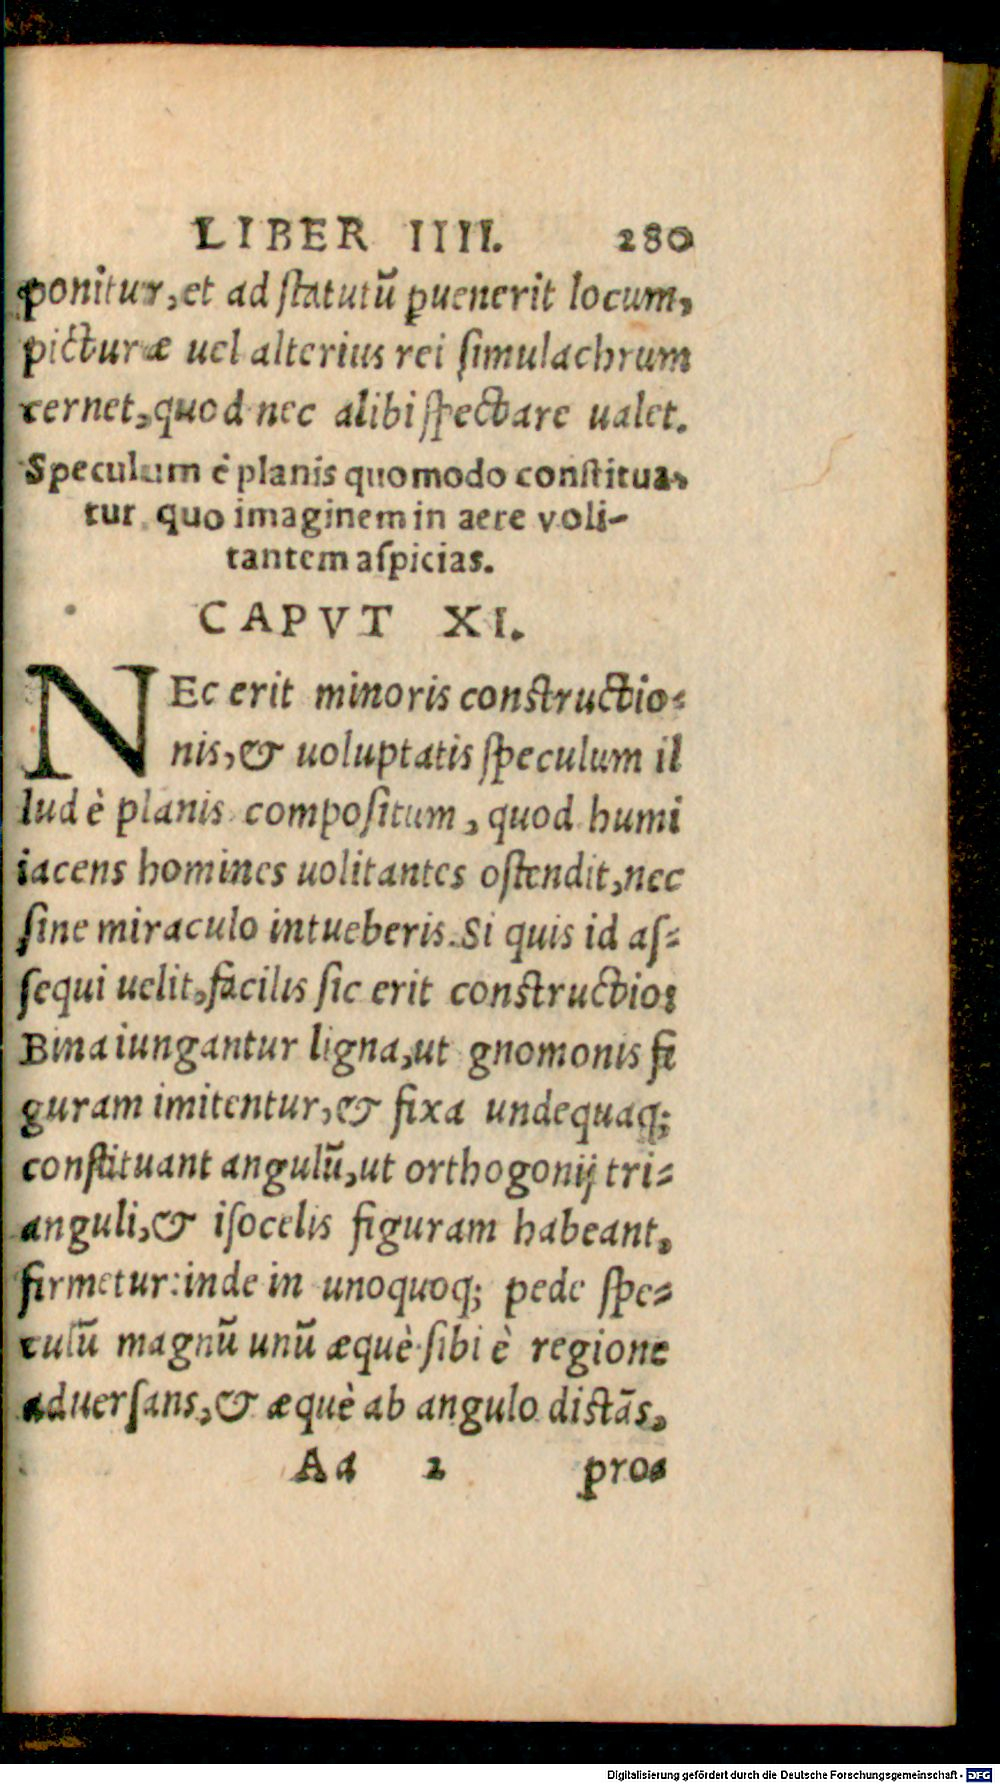 LIBER IIII. 280
ponitur, et ad ſtatutũ ꝑuenerit locum,
picturæ uel alterius rei ſimulachrum
cernet, quod nec alibi ſpectare ualet.
Speculum è planis quomodo conſtitua-
tur quo imaginem in aere voli-
tantem aſpicias.
CAPVT XI.
NEc erit minoris constructio-
nis, & uoluptatis ſpeculum il
lud è planis compoſitum, quod humi
iacens homines uolitantes oſtendit, nec
ſine miraculo intueberis. Si quis id aſ-
ſequi uelit, facilis ſic erit constructio:
Bina iungantur ligna, ut gnomonis fi
guram imitentur, & fixa undequaq;
conſtituant angulũ, ut orthogonij tri-
anguli, & iſocelis figuram habeant,
firmetur: inde in unoquoq; pede ſpe-
culũ magnũ unũ æquè ſibi è regione
aduerſans, & æquè ab angulo distãs,
Aa 2 pro-
Digitalisierung gefördert durch die Deutsche Forschungsgemeinschaft - DFG